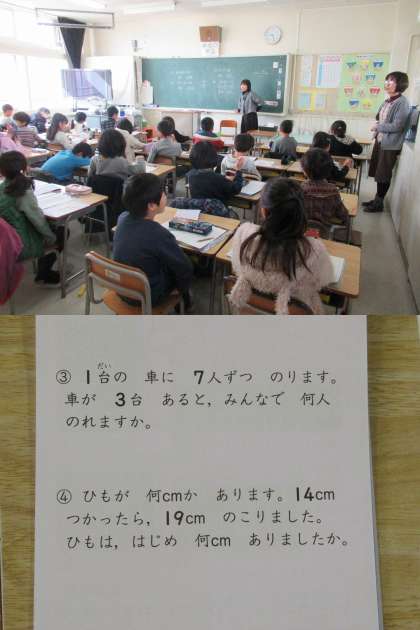 ③ 1台の 車に 7人ずつ のります。
車が 3台 あると，みんなで 何人
のれますか。
④ ひもが 何cmか あります。14cm
つかったら，19cm のこりました。
ひもは，はじめ 何cm ありましたか。